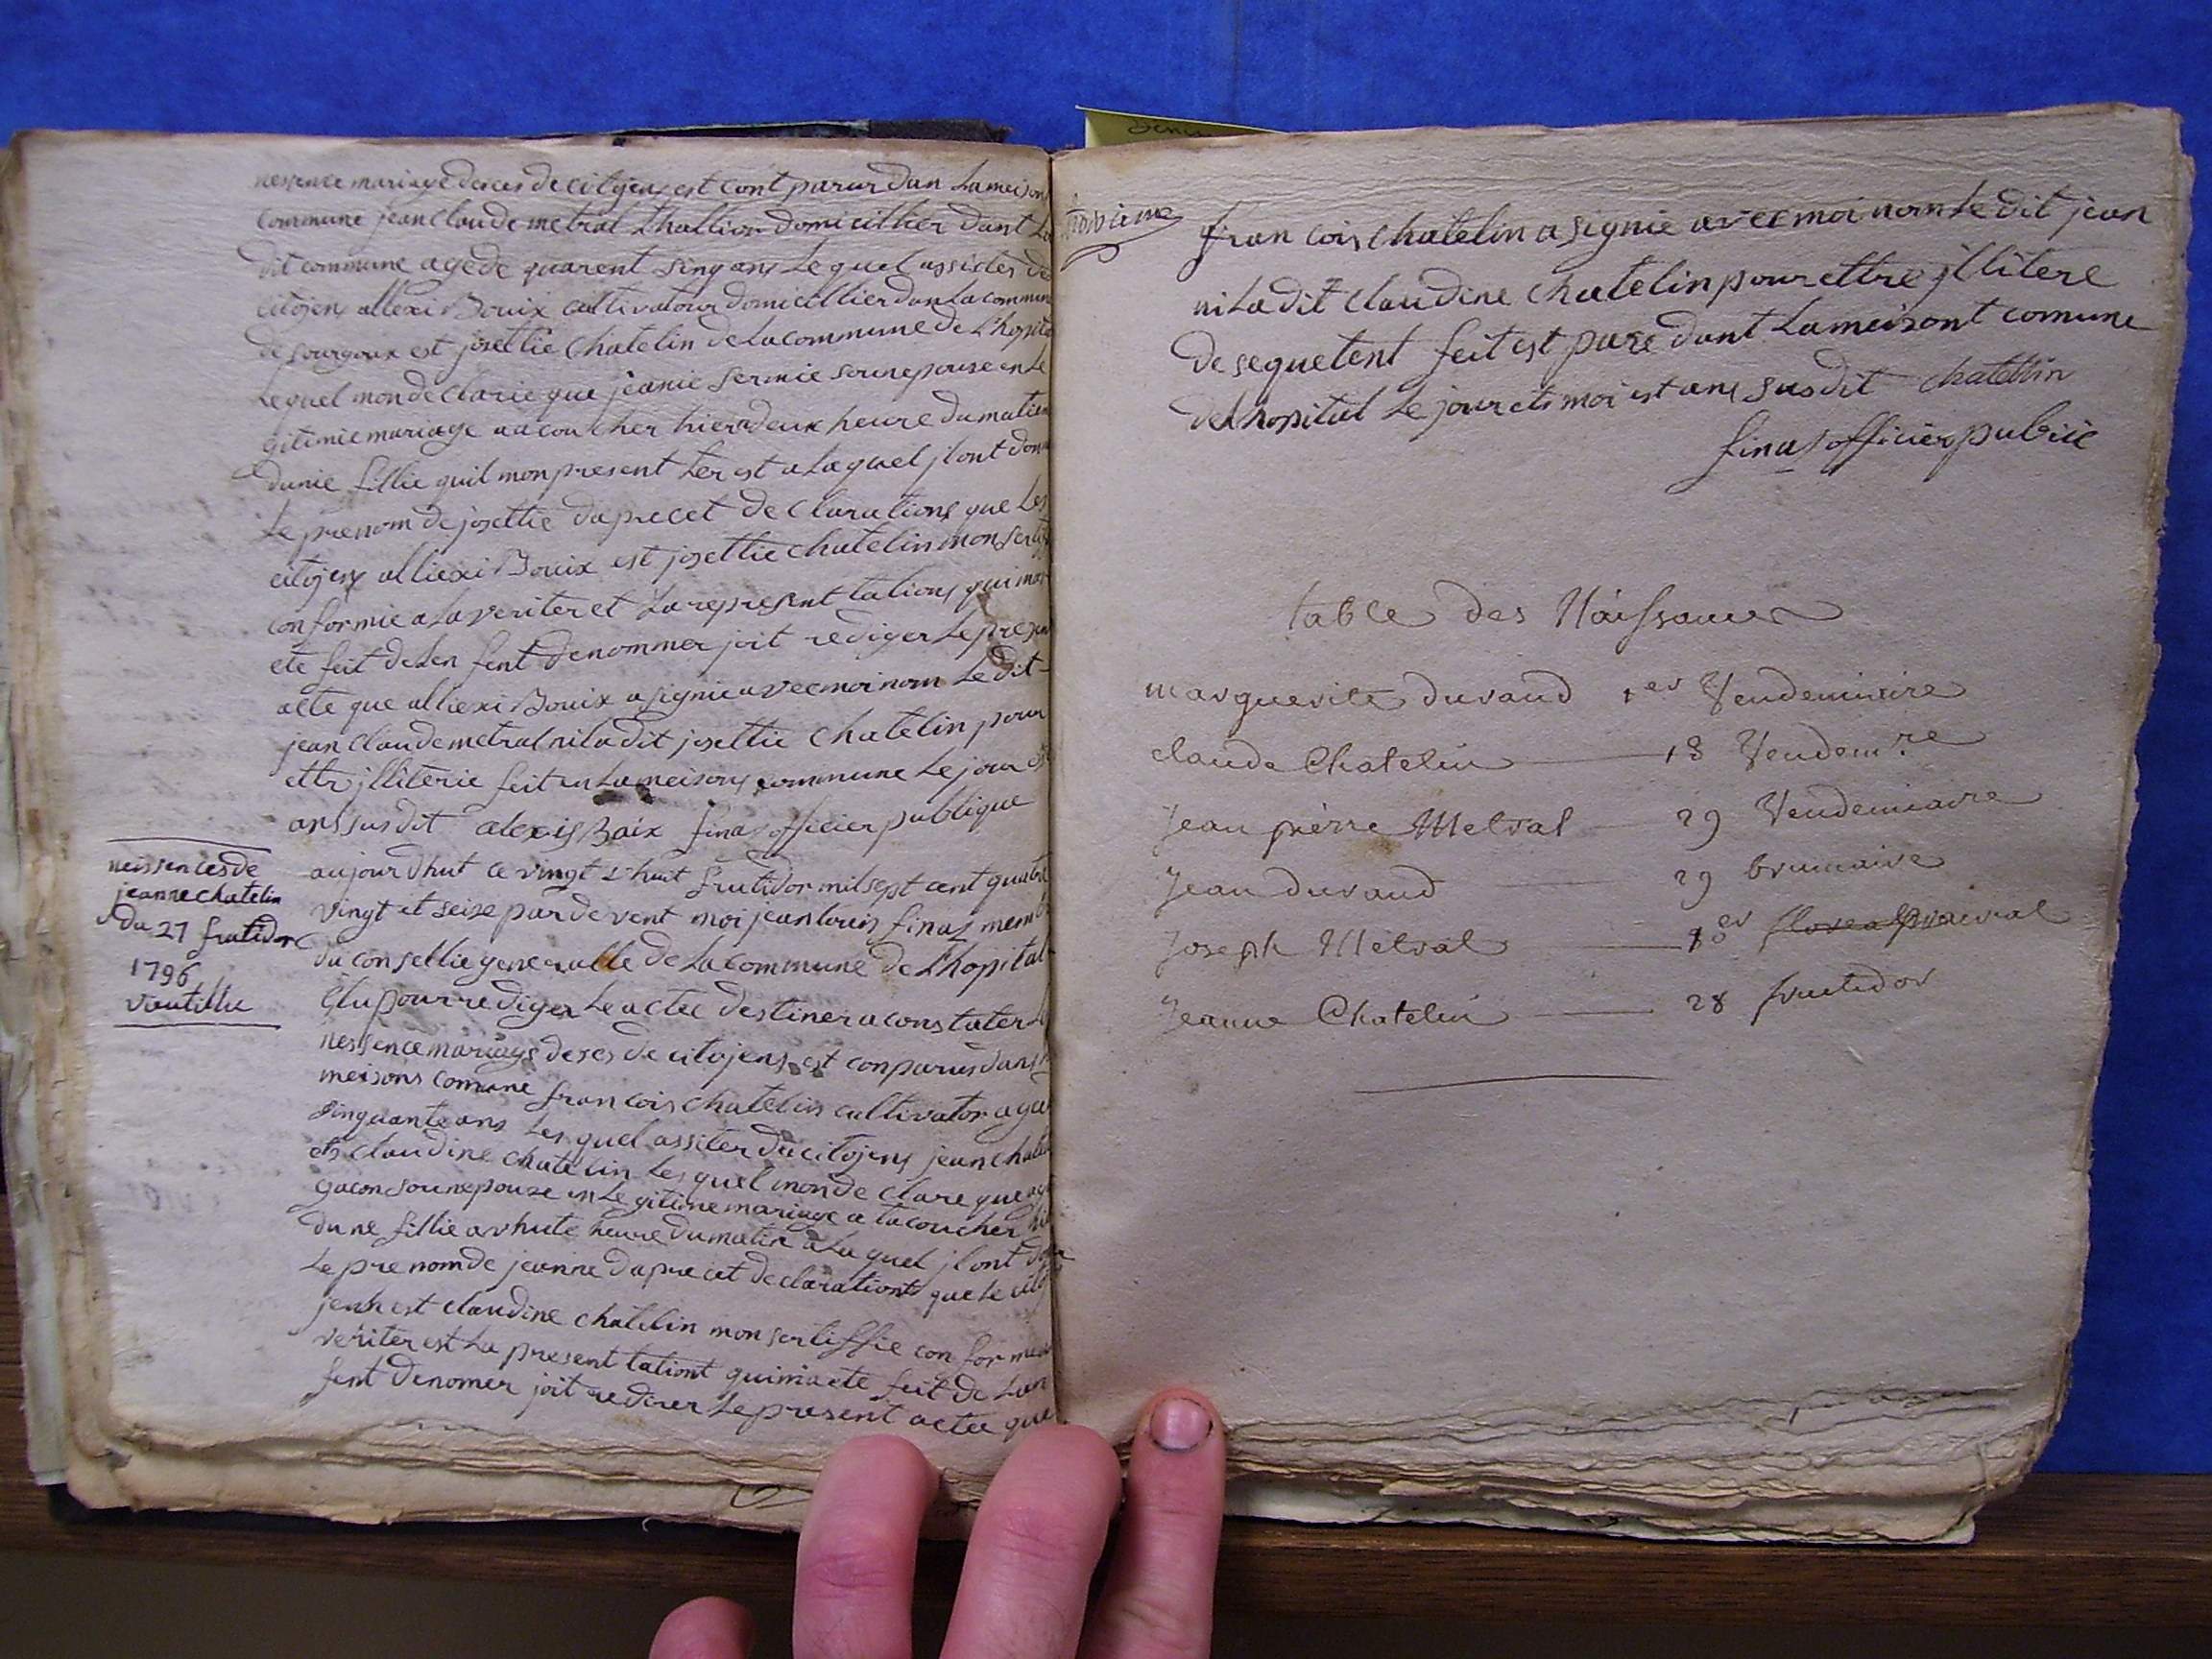 nessence mariage deces de citojens est contparur dan La meison
commune jean Claude metral thallior domicillier dant La
dit commune age de quarent sinq ans Lequel assister de
citojens allexi Bouix cultivatour domicillier dan La commune
de sourgoux est josettie Chatelin de La commune de L'hopita
Lequel mon declarie que jeanie sermie soun epouse en Le
gitimie mariage a acoucher hier a deux heure du matin
dunie fillie quil mon present ter est a Laquel jl ont donn
Le prenom de josettie dapre cet declarations que Les
citojens alliexi Bouix est josettie chatelin mon sertif
conformie a La veriter et La represent tations qui ma
ete feit de Len fent denommer joit rediger Le presen
acte que alliexi Bouix a signie avec moi nom Le dit
jean Claude metral ni La dit josettie Chatelin pour
ettr jlliterie feit en La meisons commune Le jour et
ans susdit alexis Baix finas officier publique
neissences de
jeanne chatelin
du 27 frutidor
1796
aujourdhut ce vingt s'huit frutidor mil sept cent quatre
vingt et seise par devent moi jean Louis finas memb
du consellie generalle de La commune de L'hopital
Elu pour rediger Le actee destiner a constater L
nessence mariage deses de citojens est conparus dans
meisons comune francois chatelin cultivator age
sinquante ans Lesquel assiter du citojens jean chatel
ets claudine chatelin Lesquel mon de clare que
gacon soun epouze en Le gitime mariage a tacoucher hi
du ne fillie a vhute heure du matin a La quel jl ont don
Le prenom de jeanne dapre cet declarationt que Le cito
jenh est claudine chatelin mon sertiffie con for me
veriter est La present tationt qui ma ete feit de Lan
fent denomer joit redirer Le present actee que
francois chatelin a signie avec moi nom Le dit jean
ni La dit Claudine Chatelin pour ettre jllitere
de se quetent feit est pase dant La meisont comune
de Lhopital Le jour ets moi est ans susdit chatellin
finas officier public
table des Naissances
marguerite durand 1er Vendemiaire
claude Chatelin 18 Vendemre
Jean pierre Metral 29 Vendemiaire
Jean durand 29 brumaire
Joseph Metral 1er floreal prairial
Jeanne Chatelin 28 fructidor